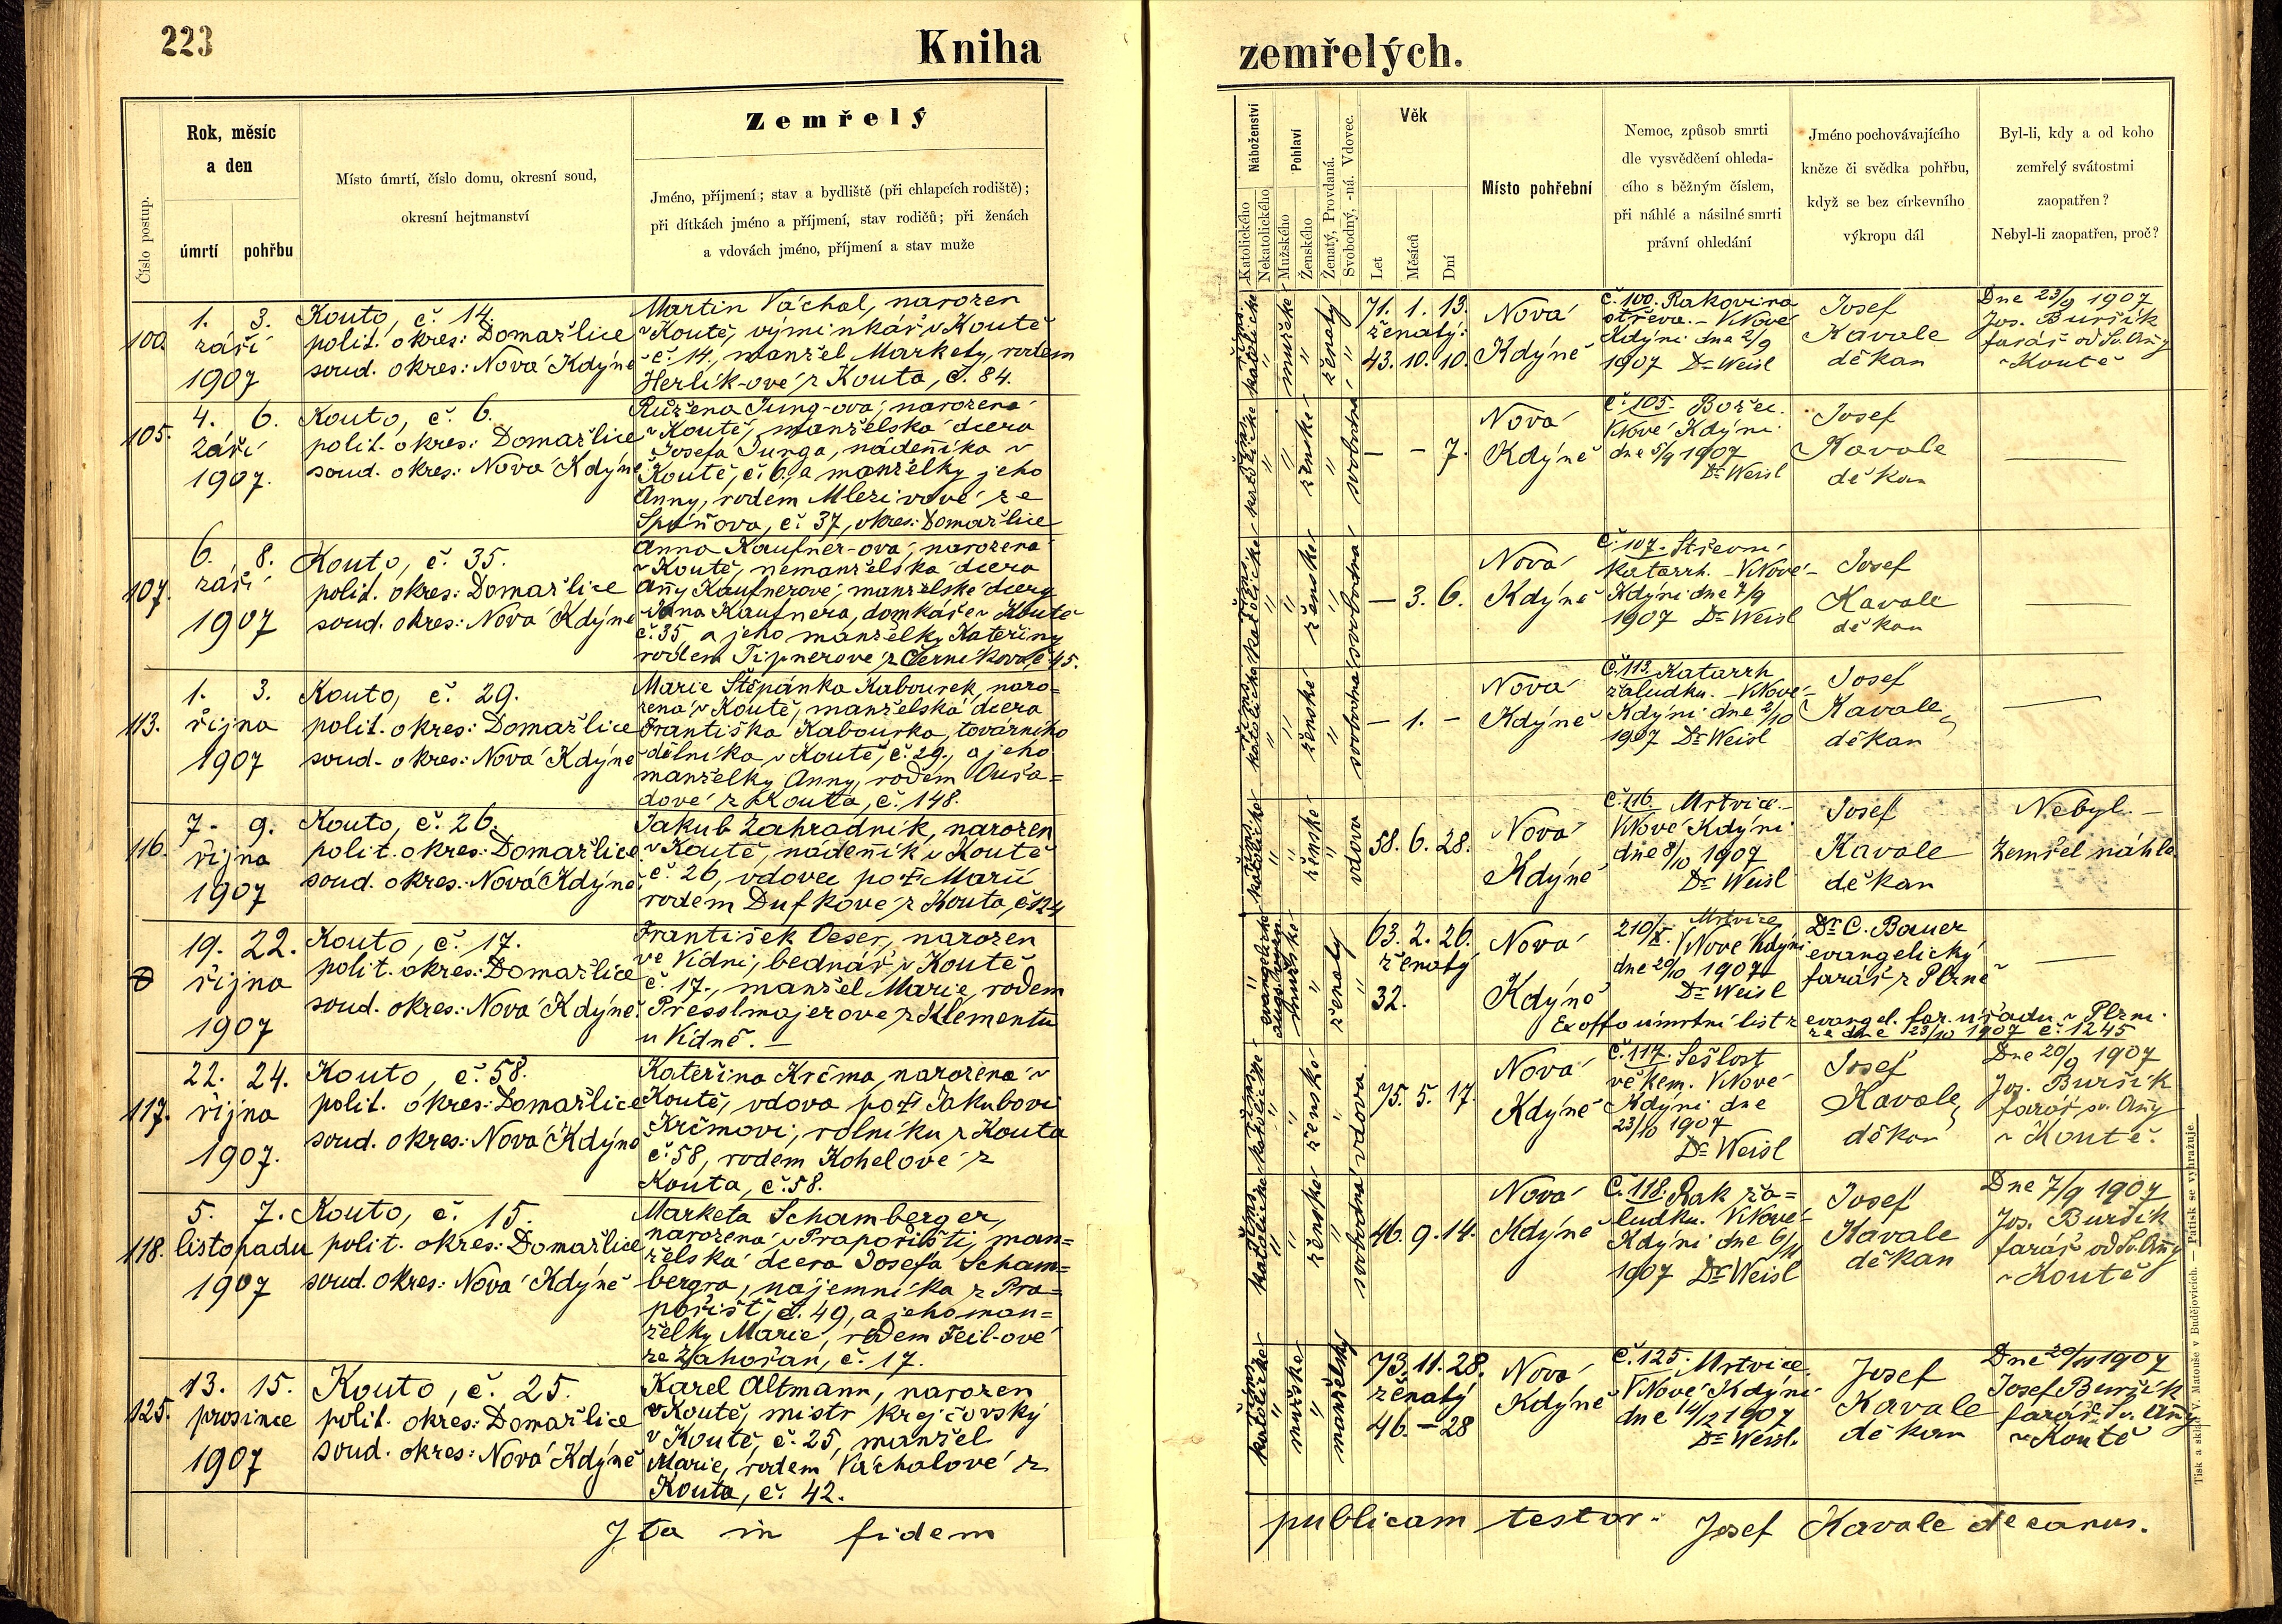 223
Kniha
zemřelých.
Číslo postup.
Rok, měsíc
a den
úmrtí
pohřbu
Místo úmrtí, číslo domu, okresní soud,
okresní hejtmanství
Zemřelý
Jméno, příjmení; stav a bydliště (při chlapcích rodiště);
při dítkách jméno a příjmení, stav rodičů; při ženách
a vdovách jméno, příjmení a stav muže
Náboženství
Katolického
Nekatolického
Pohlaví
Mužského
Ženského
Ženatý, Provdaná.
Svobodný, -ná. Vdovec.
Věk
Let
Měsíců
Dní
Místo pohřební
Nemoc, způsob smrti
dle vysvědčení ohleda-
cího s běžným číslem,
při náhlé a násilné smrti
právní ohledání
Jméno pochovávajícího
kněze či svědka pohřbu,
když se bez církevního
výkropu dál
Byl-li, kdy a od koho
zemřelý svátostmi
zaopatřen?
Nebyl-li zaopatřen, proč?
100.
1. 3.
září
1907
Kouto, č. 14.
polit. okres: Domažlice
soud. okres: Nová Kdýně
Martin Váchal, narozen
v Koutě, výminkář v Koutě
č. 14, manžel Markety, rodem
Herlík-ové z Kouta, č. 84.
katolické
mužské
ženatý
71. 1. 13.
ženatý:
43. 10. 10.
Nová
Kdýně
č. 100. Rakovina
střeva. - V Nové
Kdýni dne 2/9
1907 Dr Weisl
Josef
Kavale
děkan
Dne 23/9 1907
Jos. Buršík
farář od Sv. Anny
v Koutě
105.
4. 6.
září
1907.
Kouto, č. 6.
polit. okres: Domažlice
soud. okres: Nová Kdýně
Růžena Jung-ová, narozena
v Koutě, manželská dcera
Josefa Junga, nádenníka v
Koutě, č. 6, a manželky jeho
Anny, rodem Mlezivové ze
Spáňova, č. 37, okres: Domažlice
katolické
ženské
svobodná
- - 7.
Nová
Kdýně
č. 105. Božec.
V Nové Kdýni
dne 5/9 1907
Dr Weisl
Josef
Kavale
děkan
107.
6. 8.
září
1907
Kouto, č. 35.
polit. okres: Domažlice
soud. okres: Nová Kdýně
Anna Kaufner-ová, narozena
v Koutě, nemanželská dcera
Anny Kaufnerové, manželské dcery
Jana Kaufnera, domkáře v Koutě
č. 35, a jeho manželky Kateřiny
rodem Tipnerové z Černíkova, č. 45.
katolické
ženské
svobodná
- 3. 6.
Nová
Kdýně
č. 107. Střevní
katarrh. - V Nové
Kdýni dne 7/9
1907 Dr Weisl
Josef
Kavale
děkan
113.
1. 3.
října
1907
Kouto, č. 29.
polit. okres: Domažlice
soud. okres: Nová Kdýně
Marie Štěpánka Kabourek, naro=
zena v Koutě, manželská dcera
Františka Kabourka, továrního
dělníka v Koutě, č. 29., a jeho
manželky Anny, rodem Ouřa=
dové z Kouta, č. 148.
katolické
ženské
svobodná
- 1. -
Nová
Kdýně
č. 113. Katarrh
žaludku. - V Nové
Kdýni dne 2/10
1907 Dr Weisl
Josef
Kavale
děkan
116.
7. 9.
října
1907
Kouto, č. 26.
polit. okres: Domažlice
soud. okres: Nová Kdýně
Jakub Zahradník, narozen
v Koutě, nádenník v Koutě
č. 26, vdovec po † Marii
rodem Dufkové z Kouta, č. 124
katolické
ženské
vdova
58. 6. 28.
Nová
Kdýně
č. 116. Mrtvice. -
V Nové Kdýni
dne 8/10 1907
Dr Weisl
Josef
Kavale
děkan
Nebyl. -
Zemřel náhle.
19. 22.
října
1907
Kouto, č. 17.
polit. okres: Domažlice
soud. okres: Nová Kdýně.
František Oeser, narozen
ve Vídni, bednář v Koutě
č. 17., manžel Marie, rodem
Presslmajerové z Klementu
u Vídně. -
mužské
ženatý
63. 2. 26.
ženatý
32.
Nová
Kdýně
210/X. Mrtvice
V Nové Kdýni
dne 20/10 1907
Dr Weisl
Dr C. Bauer
evangelický
farář z Plzně
Ex offo úmrtní list z evangel. far. úřadu v Plzni
ze dne 23/10 1907 č. 1245
117.
22. 24.
října
1907.
Kouto, č. 58.
polit. okres: Domažlice
soud. okres: Nová Kdýně
Kateřina Krčma, narozena v
Koutě, vdova po † Jakubovi
Krčmovi, rolníku z Kouta
č. 58, rodem Kohelové z
Kouta, č. 58.
katolické
ženské
vdova
75. 5. 17.
Nová
Kdýně
č. 117. Sešlost
věkem. V Nové
Kdýni dne
23/10 1907
Dr Weisl
Josef
Kavale,
děkan
Dne 20/9 1907
Jos. Buršík
farář sv. Anny
v Koutě.
118.
5. 7.
listopadu
1907
Kouto, č. 15.
polit. okres: Domažlice
soud. okres: Nová Kdýně
Marketa Schamberger,
narozena v Prapořišti, man=
želská dcera Josefa Scham=
bergra, nájemníka z Pra=
pořišť, č. 49, a jeho man=
želky Marie, rodem Feil-ové
ze Zahořan, č. 17.
katolické
ženské
svobodná
46. 9. 14.
Nová
Kdýně
č. 118. Rak ža=
ludku. V Nové
Kdýni dne 6/11
1907 Dr Weisl
Josef
Kavale
děkan
Dne 7/9 1907
Jos. Buršík
farář od Sv. Anny
v Koutě
125.
13. 15.
prosince
1907
Kouto, č. 25.
polit. okres: Domažlice
soud. okres: Nová Kdýně
Karel Altmann, narozen
v Koutě, mistr krejčovský
v Koutě, č. 25, manžel
Marie, rodem Váchalové z
Kouta, č. 42.
katolické
mužské
manželský
73. 11. 28.
ženatý
46. - 28
Nová
Kdýně
č. 125. Mrtvice.
V Nové Kdýni
dne 14/12 1907
Dr Weisl.
Josef
Kavale
děkan
Dne 20/11 1907
Josef Buršík
farář Sv. Anny
v Koutě
Ita in fidem
publicam testor. Josef Kavale decanus.
Tisk a sklad V. Matouše v Budějovicích. — Patisk se vyhražuje.